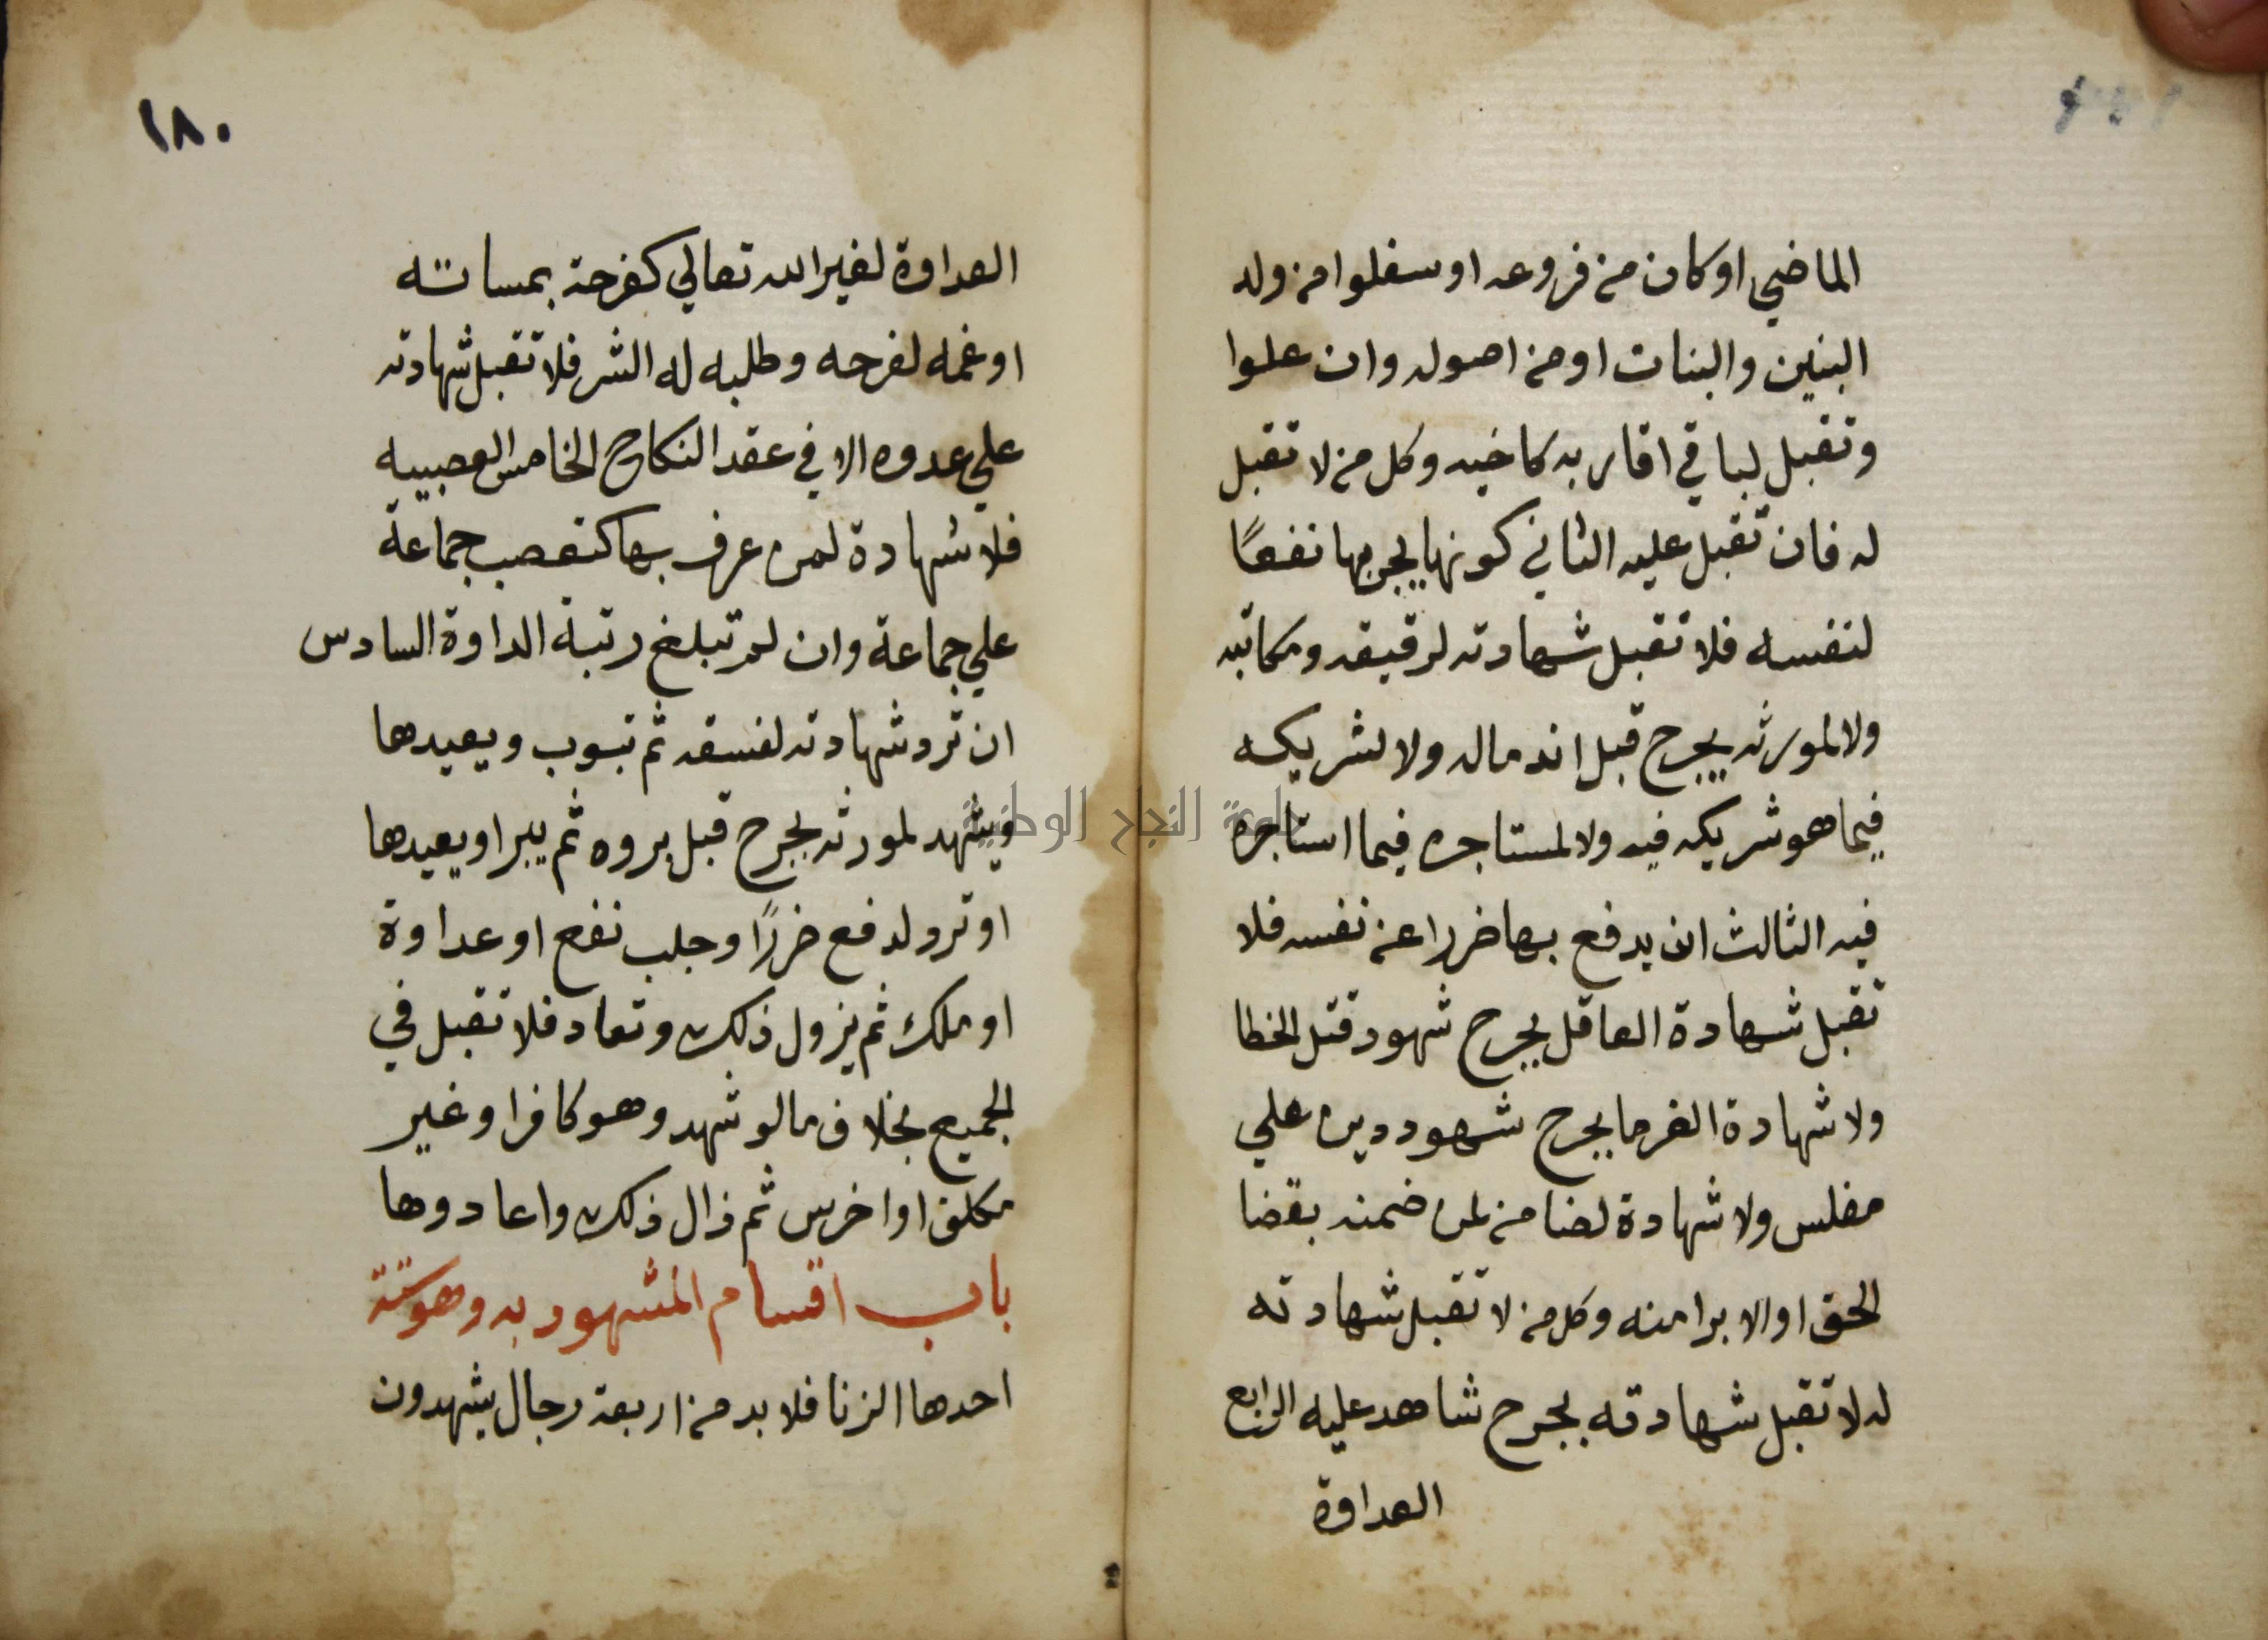 الماضي او كان من فروعه او سفلوا من ولد
البنين والبنات او من اصوله وان علوا
وتقبل لباقي اقاربه كاخيه وكل من لا تقبل
له فان تقبل عليه الثاني كونها يجر بها نفعًا
لنفسه فلا تقبل شهادته لرقيقه ومكاتبه
ولا لمورثه بجرح قبل اندماله ولا لشريكه
فيما هو شريكه فيه ولا لمستاجره فيما استاجره
فيه الثالث ان يدفع بها ضررا عن نفسه فلا
تقبل شهادة العاقل بجرح شهود قتل الخطا
ولا شهادة الغرما بجرح شهود دين علي
مفلس ولا شهادة لضامن لمن ضمنه بقضا
الحق او الابرا منه وكل من لا تقبل شهادته
له لا تقبل شهادته بجرح شاهد عليه الرابع
العداوة
١٨٠
العداوة لغير الله تعالي كفرحة بمساته
او غمه لفرحه وطلبه له الشر فلا تقبل شهادته
علي عدوه الا في عقد النكاح الخامس العصبيه
فلا شهادة لمن عرف بها كتعصب جماعة
علي جماعة وان لم تبلغ رتبة الداوة السادس
ان ترد شهادته لفسقه ثم تبوب ويعيدها
ويشهد لمورثه بجرح قبل بروه ثم يبرا ويعيدها
او ترو لدفع ضررًا وجلب نفع او عداوة
او ملك ثم يزول ذلك وتعاد فلا تقبل في
الجميع بخلاف ما لو شهد وهو كافرا وغير
مكلف او اخرس ثم زال ذلك واعادوها
باب اقسام المشهود به وهو ستة
احدها الزنا فلا بد من اربعة رجال يشهدون
جامعة النجاح الوطنية